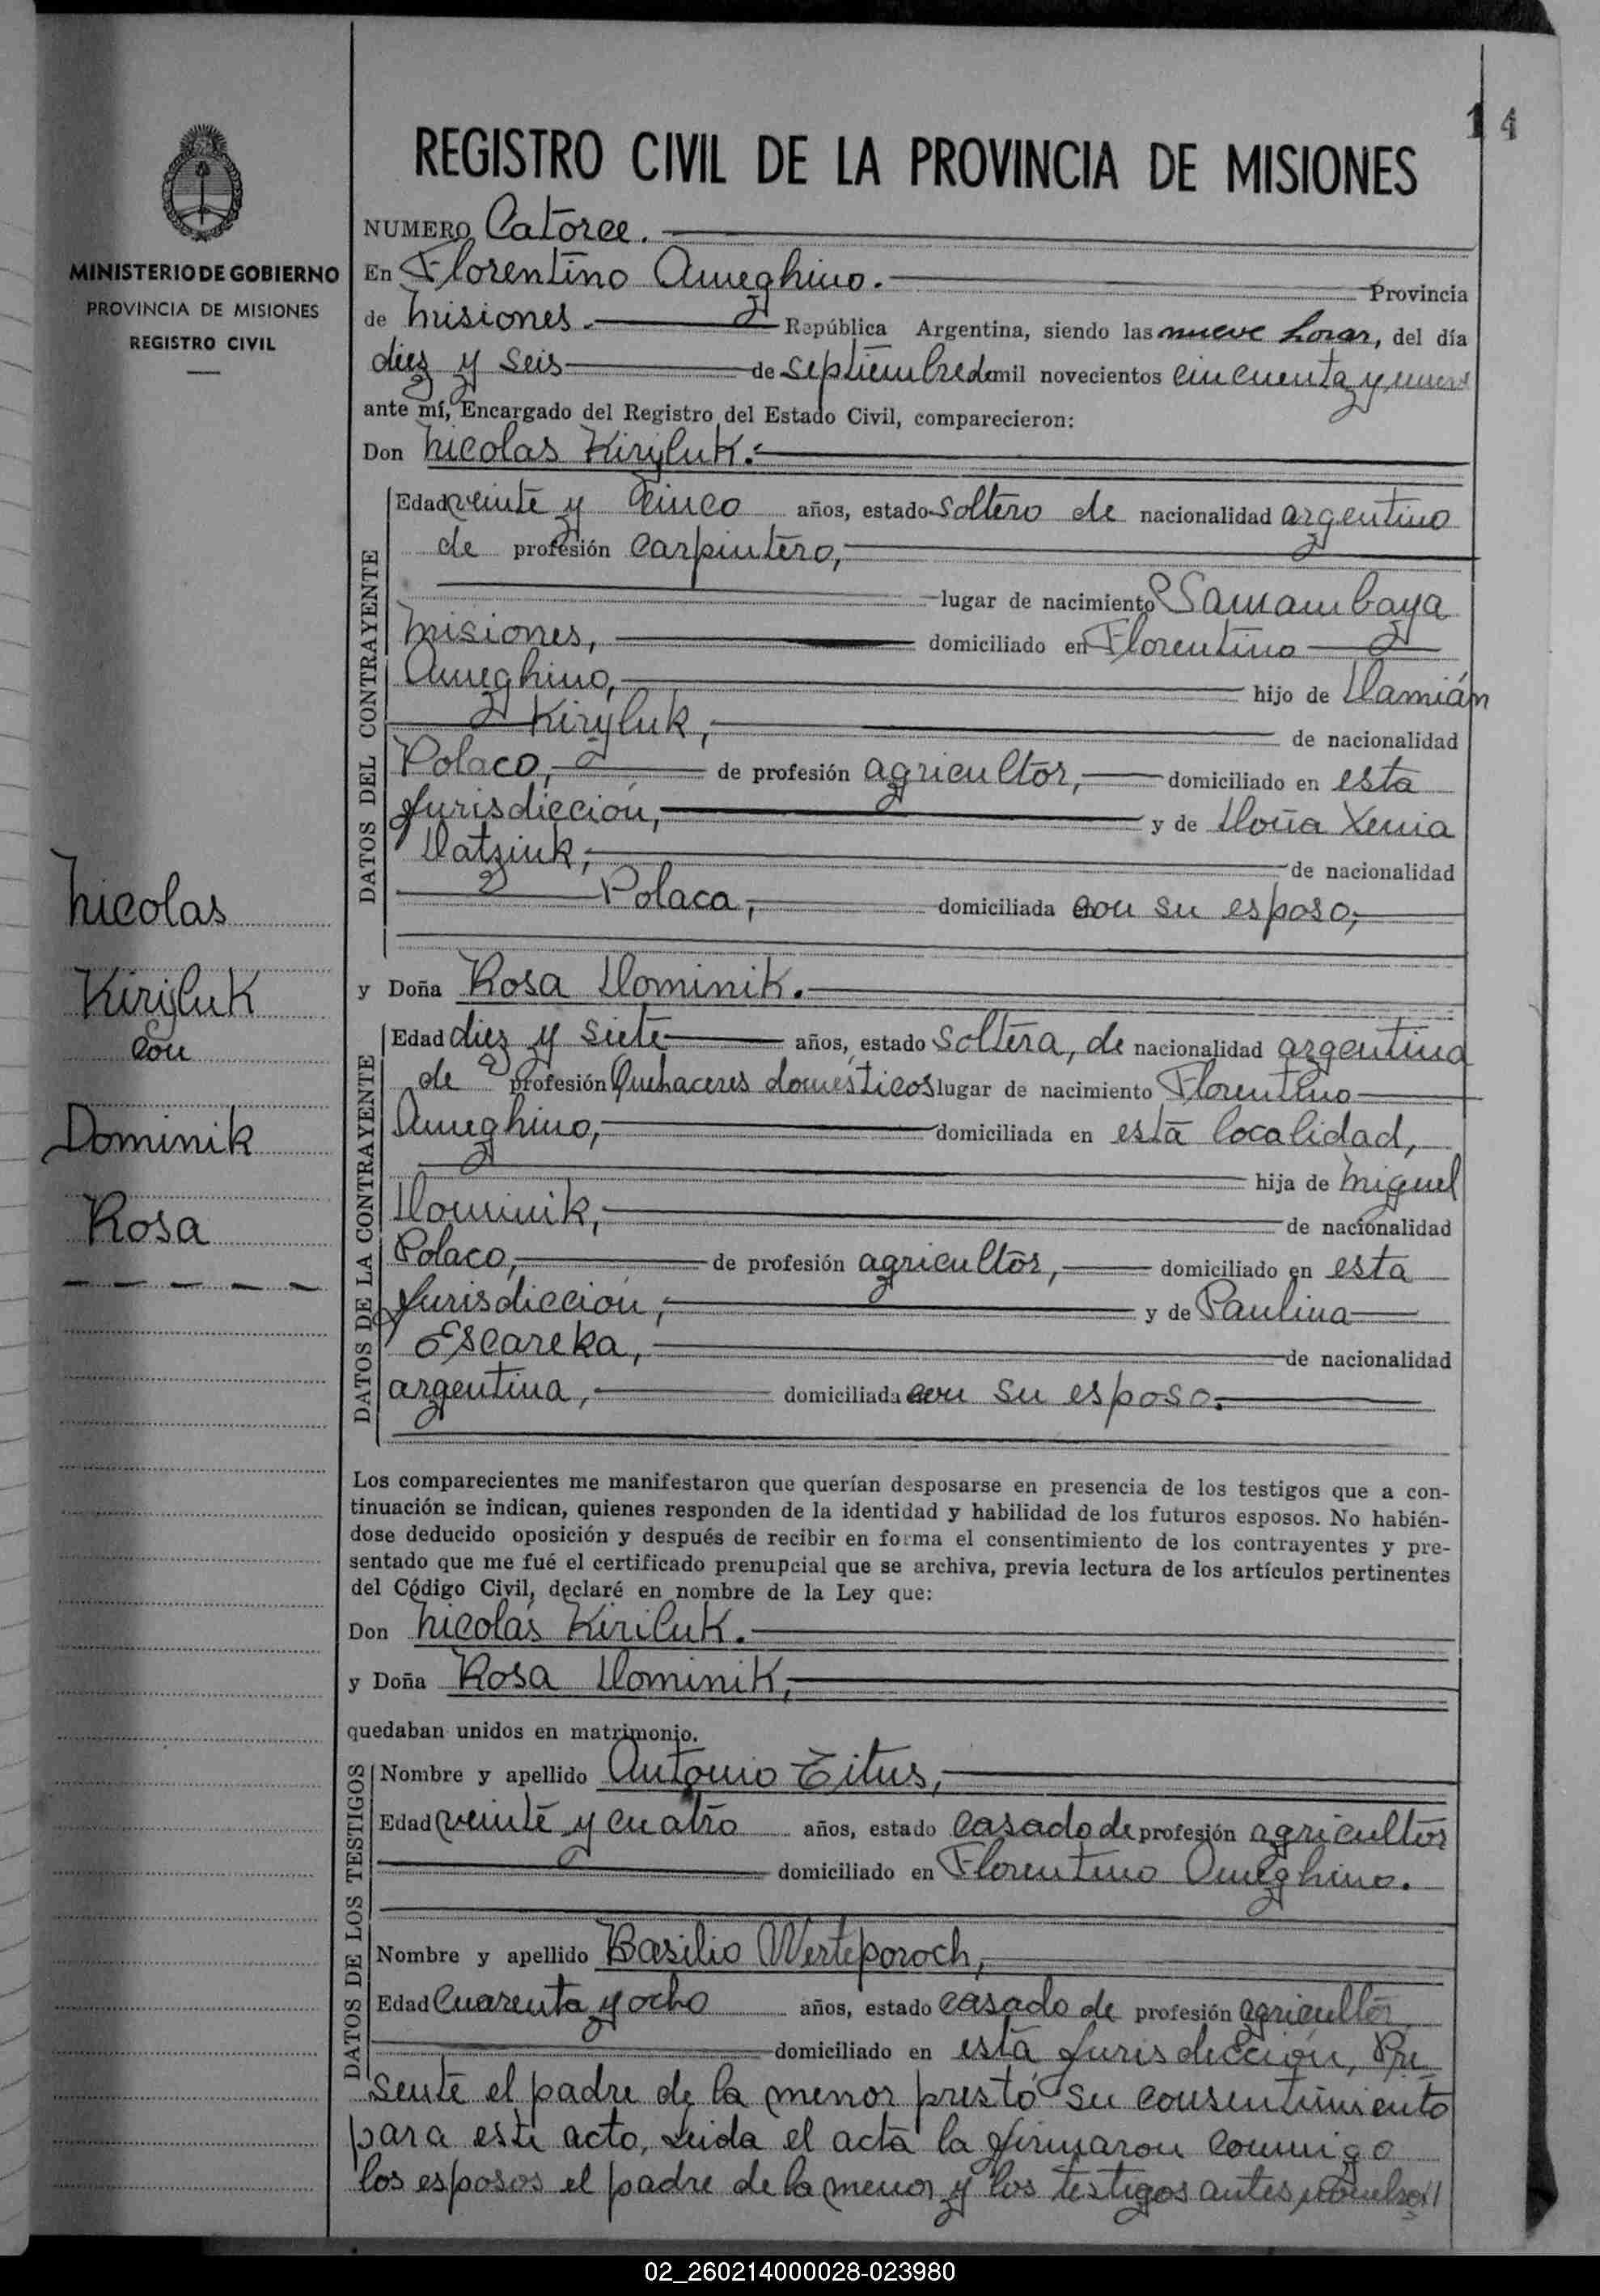 14
REGISTRO CIVIL DE LA PROVINCIA DE MISIONES
MINISTERIO DE GOBIERNO
PROVINCIA DE MISIONES
REGISTRO CIVIL
Nicolas
Kirijluk
con
Dominik
Rosa
NUMERO Catorce.
En Florentino Ameghino. Provincia
de Misiones. República Argentina, siendo las nueve horas, del día
diez y seis de septiembre de mil novecientos cincuenta y nueve
ante mí, Encargado del Registro del Estado Civil, comparecieron:
Don Nicolas Kirijluk.
DATOS DEL CONTRAYENTE
Edad veinte y cinco años, estado soltero de nacionalidad argentino
de profesión carpintero,
lugar de nacimiento Samambaya
Misiones, domiciliado en Florentino
Ameghino, hijo de Damián
Kirijluk, de nacionalidad
Polaco, de profesión agricultor, domiciliado en esta
Jurisdicción, y de Doña Xenia
Datziuk, de nacionalidad
Polaca, domiciliada con su esposo,
y Doña Rosa Dominik.
DATOS DE LA CONTRAYENTE
Edad diez y siete años, estado soltera, de nacionalidad argentina
de profesión Quehaceres domésticos lugar de nacimiento Florentino
Ameghino, domiciliada en esta localidad,
hija de Miguel
Dominik, de nacionalidad
Polaco, de profesión agricultor, domiciliado en esta
Jurisdicción, y de Paulina
Escareka, de nacionalidad
argentina, domiciliada con su esposo.
Los comparecientes me manifestaron que querían desposarse en presencia de los testigos que a con-
tinuación se indican, quienes responden de la identidad y habilidad de los futuros esposos. No habién-
dose deducido oposición y después de recibir en forma el consentimiento de los contrayentes y pre-
sentado que me fué el certificado prenupcial que se archiva, previa lectura de los artículos pertinentes
del Código Civil, declaré en nombre de la Ley que:
Don Nicolás Kiriluk.
y Doña Rosa Dominik,
quedaban unidos en matrimonio.
DATOS DE LOS TESTIGOS
Nombre y apellido Antonio Titus,
Edad veinte y cuatro años, estado casado de profesión agricultor
domiciliado en Florentino Ameghino.
Nombre y apellido Basilio Werteporoch,
Edad cuarenta y ocho años, estado casado de profesión agricultor
domiciliado en esta Jurisdicción, Pre
sente el padre de la menor prestó su consentimiento
para este acto, Leída el acta la firmaron conmigo
los esposos el padre de la menor y los testigos antes
02_260214000028-023980